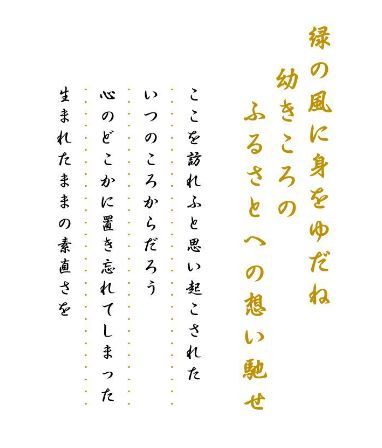 緑の風に身をゆだね
幼きころの
ふるさとへの想い馳せ
ここを訪れふと思い起こされた
いつのころからだろう
心のどこかに置き忘れてしまった
生まれたままの素直さを